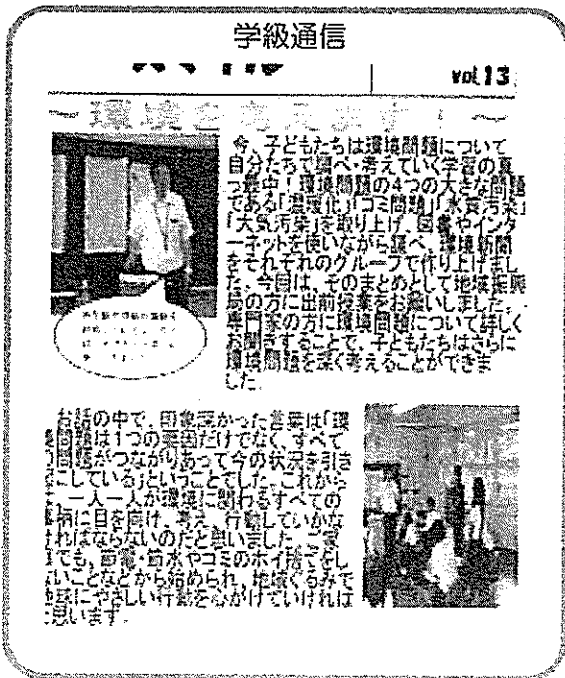 学級通信
vol.13
~環境を考えます!~
今、子どもたちは環境問題について
自分たちで調べ・考えていく学習の真
っ最中!環境問題の4つの大きな問題
である「温暖化」「ゴミ問題」「水質汚染」
「大気汚染」を取り上げ、図書やインタ
ーネットを使いながら調べ、環境新聞
をそれぞれのグループで作り上げまし
た。今回は、そのまとめとして地域振興
局の方に出前授業をお願いしました。
専門家の方に環境問題について詳しく
お聞きすることで、子どもたちはさらに
環境問題を深く考えることができま
した。
お話の中で、印象深かった言葉は「環
問題は1つの要因だけでなく、すべて
問題がつながりあって今の状況を引き
こしている」ということでした。これから
一人一人が環境に関わるすべての
柄に目を向け、考え、行動していかな
ればならないのだと思いました。ご家
でも、節電・節水やゴミのポイ捨てをし
いことなどから始められ、地域ぐるみで
球にやさしい行動を心がけていければ
思います。